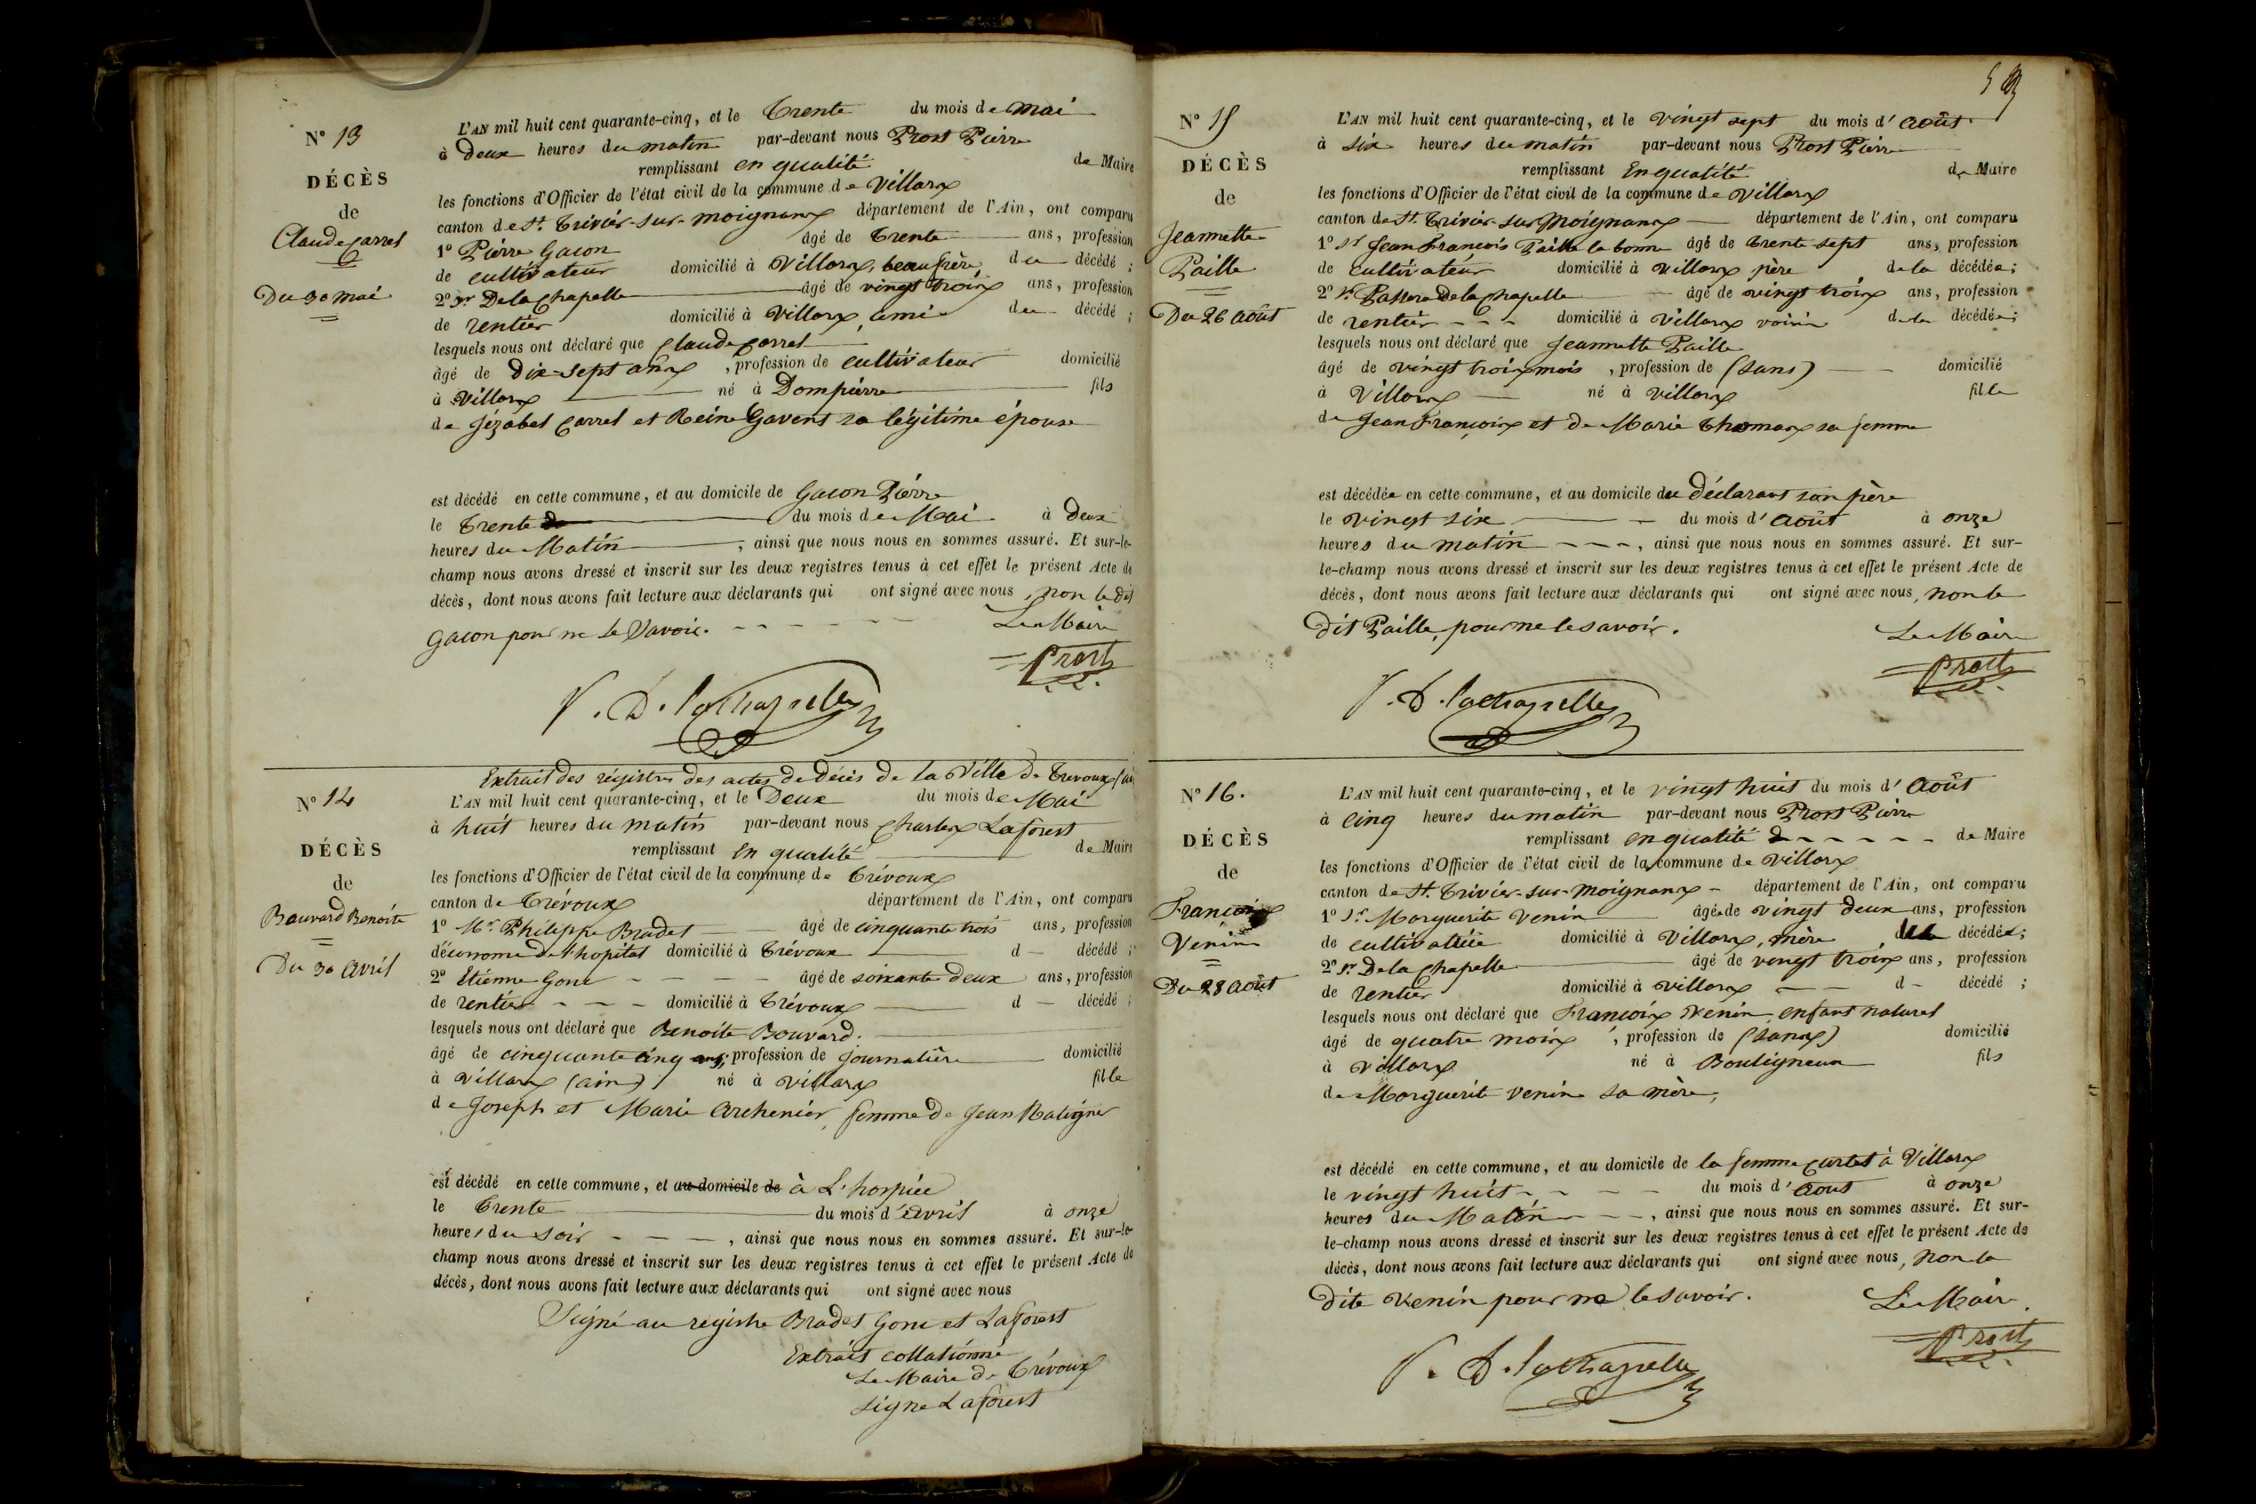 N° 13
DÉCÈS
de
Claude Carrel
Du 30 mai
L'AN mil huit cent quarante-cinq, et le Trente du mois de mai
à deux heures du matin par-devant nous Prost Pierre
remplissant en qualité de Maire
les fonctions d'Officier de l'état civil de la commune de Villars
canton de St. Trivier-sur-moignans département de l'Ain, ont comparu
1° Pierre Gacon âgé de Trente ans, profession
de cultivateur domicilié à Villars, beau frère, du décédé ;
2° Sr Delachapelle âgé de vingt trois ans, profession
de rentier domicilié à Villars, ami du décédé ;
lesquels nous ont déclaré que Claude Carrel
âgé de dix-sept ans, profession de cultivateur domicilié
à Villars né à Dompierre fils
de Jézabel Carrel et Reine Gavent sa légitime épouse
est décédé en cette commune, et au domicile de Gacon Pierre
le Trente du mois de Mai à deux
heures du Matin, ainsi que nous nous en sommes assuré. Et sur-le-
champ nous avons dressé et inscrit sur les deux registres tenus à cet effet le présent Acte de
décès, dont nous avons fait lecture aux déclarants qui ont signé avec nous, non le dit
Gacon pour ne le Savoir.
Le Maire
Prost
V. D. lachapelle
Extrait des régistres des actes de Décès de la Ville de Trevoux (ain
N° 14
DÉCÈS
de
Bouvard Benoite
Du 30 avril
L'AN mil huit cent quarante-cinq, et le Deux du mois de Mai
à huit heures du matin par-devant nous Charles Laforest
remplissant en qualité de Maire
les fonctions d'Officier de l'état civil de la commune de Trévoux
canton de Trévoux département de l'Ain, ont comparu
1° Mr. Philippe Bradet âgé de cinquante trois ans, profession
d'économe de l'hopital domicilié à Trévoux d décédé ;
2° Etienne Gone âgé de soixante deux ans, profession
de rentier domicilié à Trévoux d décédé ;
lesquels nous ont déclaré que Benoite Bouvard.
âgé de cinquante cinq ans, profession de journalière domicilié
à Villars (ain) né à villars fille
de Joseph et Marie Archenier, femme de Jean Matigner
est décédé en cette commune, et au domicile de à L'hospice
le Trente du mois d'avril à onze
heures du soir, ainsi que nous nous en sommes assuré. Et sur-le-
champ nous avons dressé et inscrit sur les deux registres tenus à cet effet le présent Acte de
décès, dont nous avons fait lecture aux déclarants qui ont signé avec nous
Signé au registre Bradet Gone et Laforest
Extrait collationné
Le Maire de Trévoux
signe Laforest
N° 15
DÉCÈS
de
Jeannette
Paille
Du 26 août
L'AN mil huit cent quarante-cinq, et le vingt sept du mois d'août
à six heures du matin par-devant nous Prost Pierre
remplissant En qualité de Maire
les fonctions d'Officier de l'état civil de la commune de Villars
canton de St. Trivier-sur Moignans département de l'Ain, ont comparu
1° Sr Jean François Paille le bonne âgé de trente sept ans, profession
de cultivateur domicilié à Villars père de la décédée ;
2° Sr. Passera Delachapelle âgé de vingt trois ans, profession
de rentier domicilié à Villars voisin de la décédée ;
lesquels nous ont déclaré que Jeannette Paille
âgé de vingt trois mois, profession de (sans) domicilié
à Villars né à villars fille
de Jean François et de Marie Thomas sa femme
est décédée en cette commune, et au domicile du déclarant son père
le vingt six du mois d'août à onze
heures du matin, ainsi que nous nous en sommes assuré. Et sur-
le-champ nous avons dressé et inscrit sur les deux registres tenus à cet effet le présent Acte de
décès, dont nous avons fait lecture aux déclarants qui ont signé avec nous, non le
dit Paille, pour ne le savoir.
Le Maire
Prost
V. D. lachapelle
N° 16.
DÉCÈS
de
François
Venin
Du 28 août
L'AN mil huit cent quarante-cinq, et le vingt huit du mois d'août
à cinq heures du matin par-devant nous Prost Pierre
remplissant en qualité de Maire
les fonctions d'Officier de l'état civil de la commune de Villars
canton de St. Trivier-sur-moignans département de l'Ain, ont comparu
1° Marguerite Venin âgée de vingt deux ans, profession
de cultivatrice domicilié à Villars, mère décédé ;
2° Sr Delachapelle âgé de vingt trois ans, profession
de rentier domicilié à villars d décédé ;
lesquels nous ont déclaré que François Venin, enfant naturel
âgé de quatre mois, profession de (sans) domicilié
à Villars né à Bouligneux fils
de Marguerite Venin sa mère,
est décédé en cette commune, et au domicile de la femme Curtet à Villars
le vingt huit du mois d'aout à onze
heures du Matin, ainsi que nous nous en sommes assuré. Et sur-
le-champ nous avons dressé et inscrit sur les deux registres tenus à cet effet le présent Acte de
décès, dont nous avons fait lecture aux déclarants qui ont signé avec nous, non la
dite Venin pour ne le savoir.
Le Maire
Prost
V. D. lachapelle